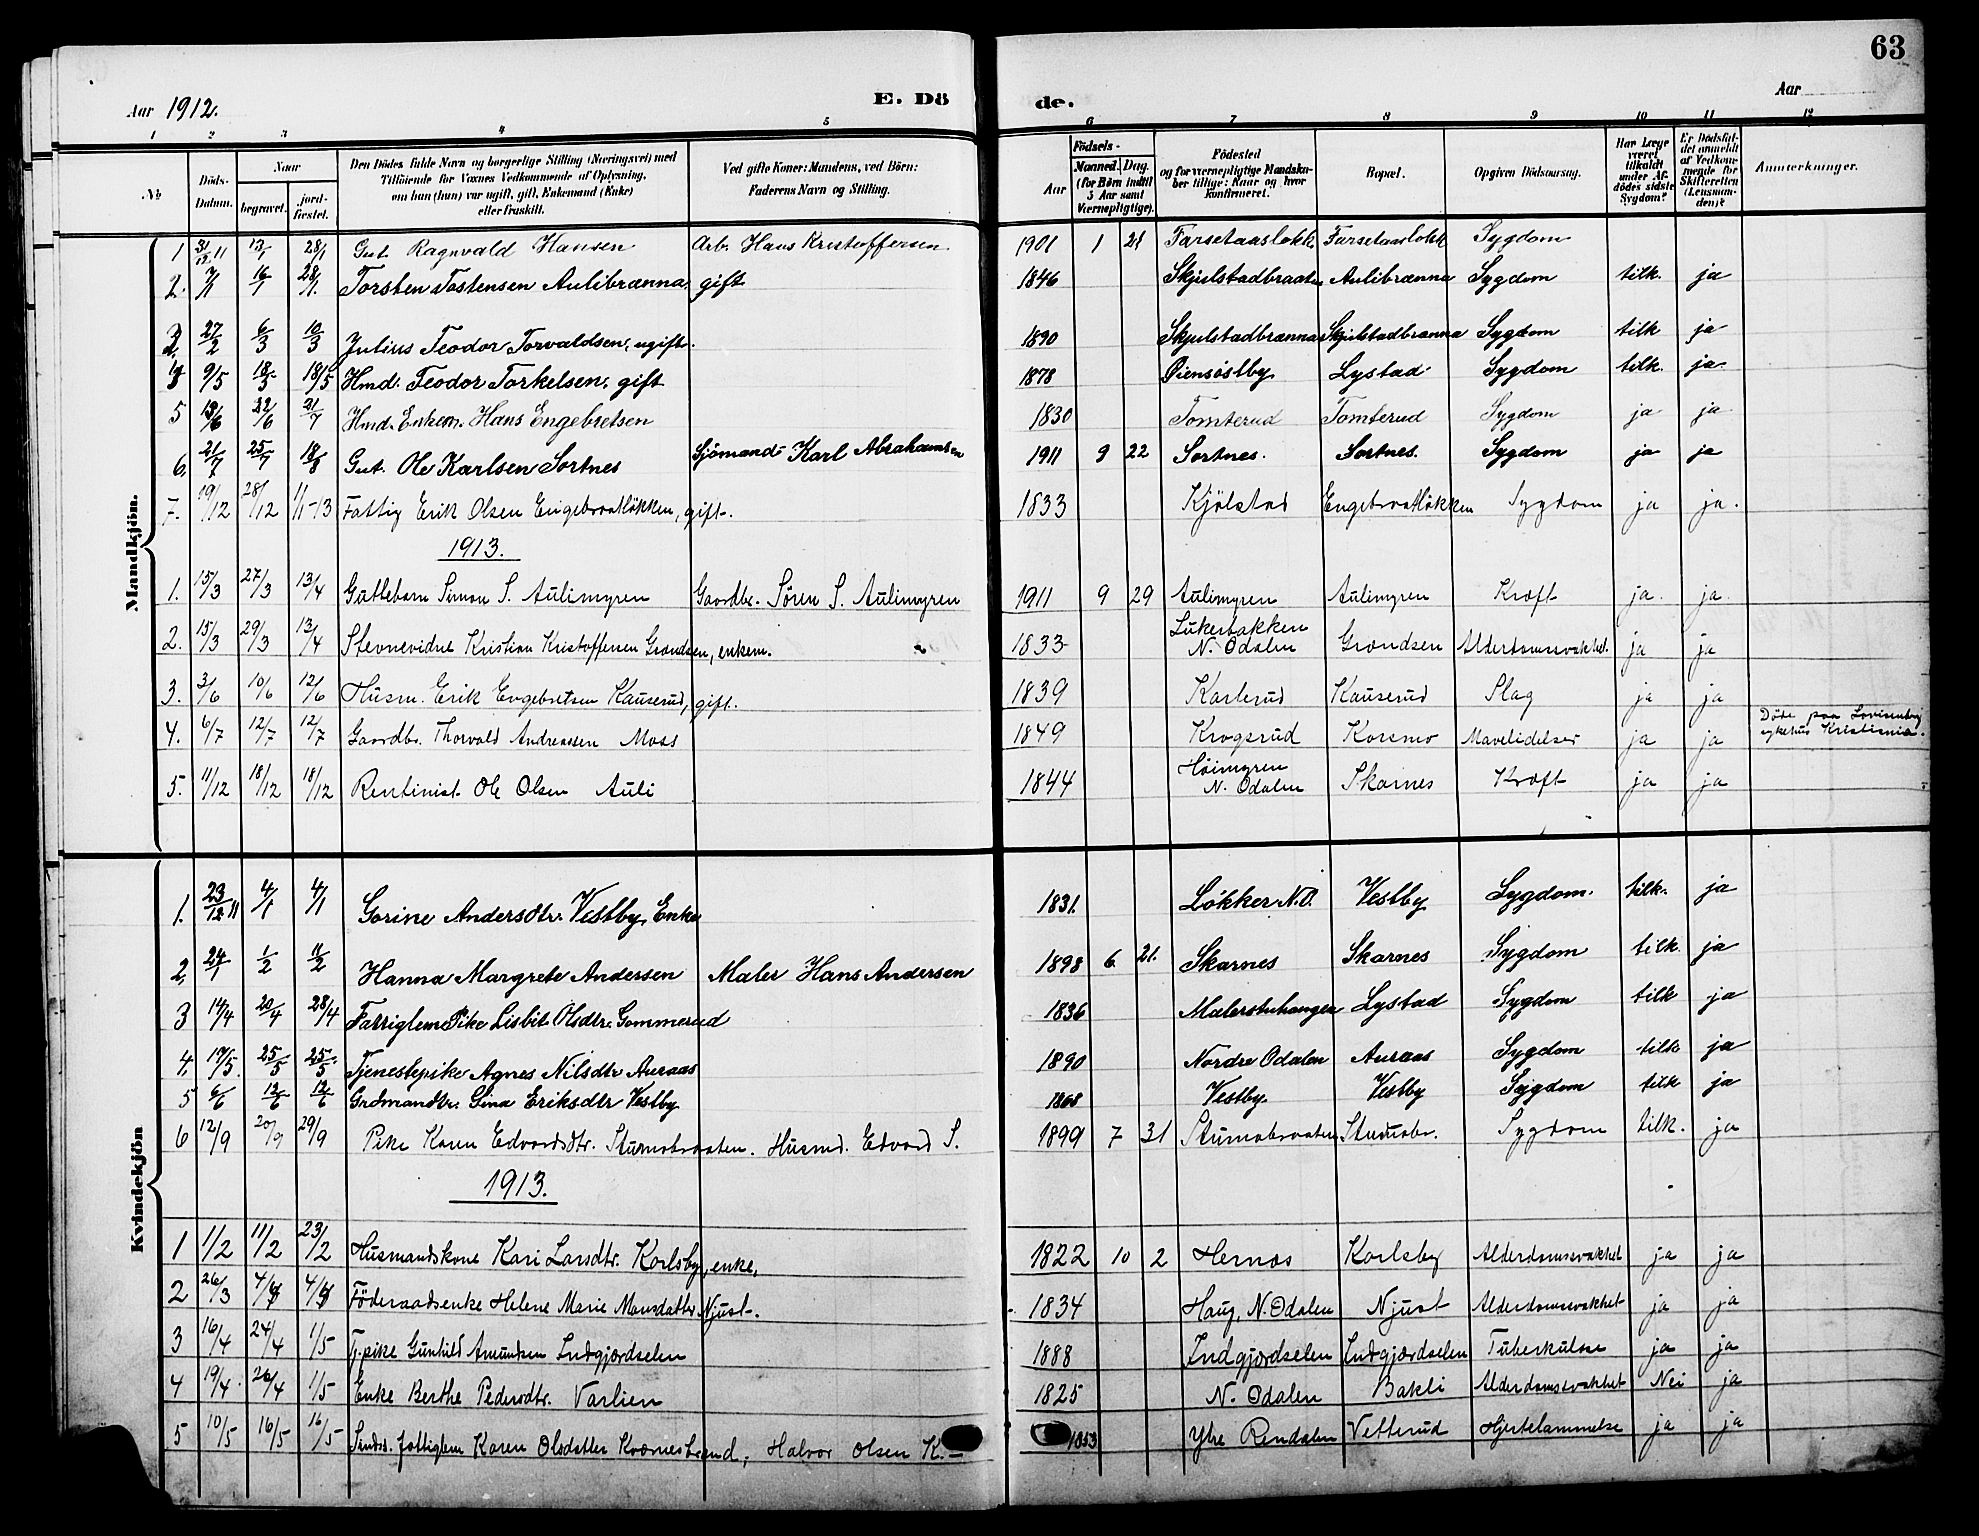 63
Aar 1912. E. Dö de. Aar
1 2 3 4 5 6 7 8 9 10 11 12
No. Döds-Datum. Naar begravet. jordfæstet. Den Dödes fulde Navn og borgerlige Stilling (Næringsvei) med Tilföiende for Voxnes Vedkommende af Oplysning, om han (hun) var ugift, gift, Enkemand (Enke) eller fraskilt. Ved gifte Koner: Mandens, ved Börn: Faderens Navn og Stilling. Födsels- Aar Maaned. Dag. (for Börn indtil 5 Aar samt Værnepligtige). Födested og for værnepligtige Mandskaber tillige: Naar og hvor konfirmeret. Bopæl. Opgiven Dödsaarsag. Har Læge været tilkaldt under Afdödes sidste Sygdom? Er Dödsfaldet anmeldt af Vedkommende for Skifteretten (Lensmanden)? Anmærkninger.
Mandkjön.
1 31/12 11 13/1 28/1 Gut Ragnvald Hansen Arb. Hans Kristoffersen 1901 1 21 Farsetaaslökk Farsetaaslökk Sygdom
2. 7/1 16/1 28/1. Torsten Tostensen Aulibrænna gift 1846 Skjulstadbraaten Aulibrænna Sygdom tilk. ja
3. 27/2 6/3 10/3 Julius Teodor Torvaldsen, ugift. 1890 Skjulstadbrænna Skjulstadbrænna Sygdom tilk ja
4 9/5 18/5 18/5 Hmd. Teodor Torkelsen, gift 1878 Öiensöstby Lystad Sygdom tilk. ja
5 13/6 22/6 21/7 Hmd. Enkem. Hans Engebretsen 1830 Tomterud Tomterud Sygdom ja ja
6. 21/7 25/7 18/8 Gut. Ole Karlsen Sortnes Sjömand Karl Abrahamsen 1911 9 22 Sortnes. Sortnes. Sygdom ja ja
7. 19/12 28/12 1/1-13 Fattig Erik Olsen Engebraatløkken, gift. 1833 Kjølstad Engebraatløkken Sygdom ja ja.
1913.
1. 15/3 27/3 13/4 Guttebarn Simon S. Aulimyren Gaardbr. Søren S. Aulimyren 1911 9 29 Aulimyren Aulimyren Kræft ja. ja.
2. 15/3 29/3 13/4 Stevnevidne Kristian Kristoffersen Grandsen, enkem. 1833 Lukerbakken N. Odalen Grandsen Alderdomssvakhet. ja ja
3. 3/6 10/6 12/6 Husm. Erik Engebretsen Kauserud, gift. 1839 Karlerud Kauserud Slag ja ja
4. 6/7 12/7 12/7 Gaardbr. Thorvald Andreassen Moss 1849 Krogsrud Korsmo Mavelidelser ja ja Döde paa Lovisenberg sykehus Kristiania.
5. 11/12 18/12 18/12 Rentinist. Ole Olsen Auli 1844 Høimyren N. Odalen Skarnes Kræft ja ja
Kvindekjön
1. 23/12 11 4/1 4/1 Gorine Andersdtr. Vestby, Enke 1831. Løkker N.O. Vestby Sygdom. tilk. ja
2. 24/1 1/2 11/2 Hanna Margrete Andersen Maler Hans Andersen 1898 6 21. Skarnes Skarnes Sygdom tilk. ja
3 14/4 20/4 28/4 Fattiglem Pike Lisbit Olsdtr. Gommerud 1836 Malerstuhangen Lystad Sygdom tilk ja
4. 19/5. 25/5 25/5 Tjenestepike Agnes Nilsdtr Auraas 1890 Nordre Odalen Auraas Sygdom tilk ja
5 6/6 12/6 12/6 Grdmandtr. Gina Eriksdtr Vestby 1868 Vestby. Vestby Sygdom tilk ja
6 12/9 20/9 29/9 Pike Karen Edvardsdtr. Stumobraaten. Husmd. Edvard S. 1899 7 31 Stumobraaten Stumobr. Sygdom tilk. ja
1913.
1 1/2 11/2 23/2 Husmandskone Kari Larsdtr. Korlsby, enke, 1822 10 2 Hernæs Korlsby Alderdomssvakhet ja ja
2 26/3 4/4 4/4 Föderaadsenke Helene Marie Mansdatter Njust. 1834 Haug, N. Odalen Njust Alderdomssvakhet ja ja
3 16/4 24/4 1/5 Tj.pike Gunhild Amundsen Indgjærdselen 1888 Indgjærdselen Indgjærdselen Tuberkulose ja ja
4 19/4. 26/4 1/5 Enke Berthe Pedersdtr. Varlien 1825 N. Odalen Bakli Alderdomssvakhet Nei ja
5 10/5 16/5 16/5 fattiglem Karen Olsdatter Kværnesbrænd, Halvor Olsen K. 1853 Ytre Rendalen Vetterud Hjertelammelse ja ja